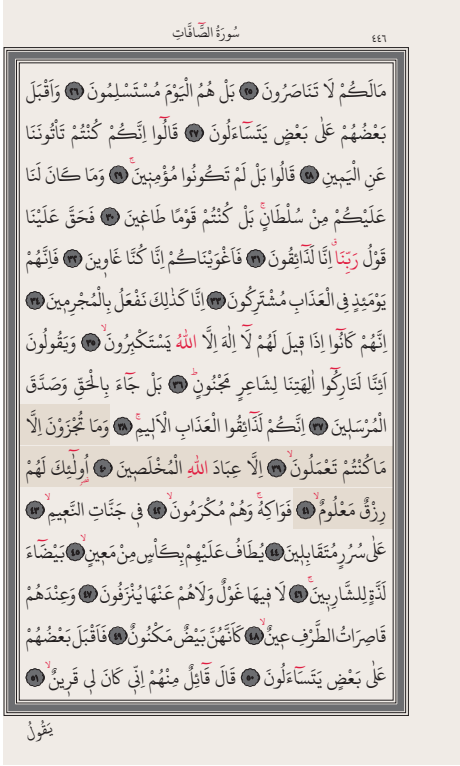 سُورَةُ الصَّافَّاتِ
٤٤٦
مَالَكُمْ لَا تَنَاصَرُونَ ﴿٢٥﴾ بَلْ هُمُ الْيَوْمَ مُسْتَسْلِمُونَ ﴿٢٦﴾ وَاَقْبَلَ
بَعْضُهُمْ عَلٰى بَعْضٍ يَتَسَٓاءَلُونَ ﴿٢٧﴾ قَالُٓوا اِنَّكُمْ كُنْتُمْ تَأْتُونَنَا
عَنِ الْيَمِينِ ﴿٢٨﴾ قَالُوا بَلْ لَمْ تَكُونُوا مُؤْمِنِينَۚ ﴿٢٩﴾ وَمَا كَانَ لَنَا
عَلَيْكُمْ مِنْ سُلْطَانٍۚ بَلْ كُنْتُمْ قَوْمًا طَاغِينَ ﴿٣٠﴾ فَحَقَّ عَلَيْنَا
قَوْلُ رَبِّنَاۗ اِنَّا لَذَٓائِقُونَ ﴿٣١﴾ فَاَغْوَيْنَاكُمْ اِنَّا كُنَّا غَاوِينَ ﴿٣٢﴾ فَاِنَّهُمْ
يَوْمَئِذٍ فِي الْعَذَابِ مُشْتَرِكُونَ ﴿٣٣﴾ اِنَّا كَذٰلِكَ نَفْعَلُ بِالْمُجْرِمِينَ ﴿٣٤﴾
اِنَّهُمْ كَانُٓوا اِذَا قِيلَ لَهُمْ لَٓا اِلٰهَ اِلَّا اللّٰهُ يَسْتَكْبِرُونَۙ ﴿٣٥﴾ وَيَقُولُونَ
اَئِنَّا لَتَارِكُٓوا اٰلِهَتِنَا لِشَاعِرٍ مَجْنُونٍۜ ﴿٣٦﴾ بَلْ جَٓاءَ بِالْحَقِّ وَصَدَّقَ
الْمُرْسَلِينَ ﴿٣٧﴾ اِنَّكُمْ لَذَٓائِقُوا الْعَذَابِ الْاَلِيمِۚ ﴿٣٨﴾ وَمَا تُجْزَوْنَ اِلَّا
مَا كُنْتُمْ تَعْمَلُونَۙ ﴿٣٩﴾ اِلَّا عِبَادَ اللّٰهِ الْمُخْلَصِينَ ﴿٤٠﴾ اُو۬لٰٓئِكَ لَهُمْ
رِزْقٌ مَعْلُومٌۙ ﴿٤١﴾ فَوَاكِهُۚ وَهُمْ مُكْرَمُونَۙ ﴿٤٢﴾ فِي جَنَّاتِ النَّعِيمِۙ ﴿٤٣﴾
عَلٰى سُرُرٍ مُتَقَابِلِينَ ﴿٤٤﴾ يُطَافُ عَلَيْهِمْ بِكَأْسٍ مِنْ مَعِينٍۙ ﴿٤٥﴾ بَيْضَٓاءَ
لَذَّةٍ لِلشَّارِبِينَۚ ﴿٤٦﴾ لَا فِيهَا غَوْلٌ وَلَاهُمْ عَنْهَا يُنْزَفُونَ ﴿٤٧﴾ وَعِنْدَهُمْ
قَاصِرَاتُ الطَّرْفِ عِينٌۙ ﴿٤٨﴾ كَاَنَّهُنَّ بَيْضٌ مَكْنُونٌ ﴿٤٩﴾ فَاَقْبَلَ بَعْضُهُمْ
عَلٰى بَعْضٍ يَتَسَٓاءَلُونَ ﴿٥٠﴾ قَالَ قَٓائِلٌ مِنْهُمْ اِنِّي كَانَ لِي قَرِينٌۙ ﴿٥١﴾
يَقُولُ